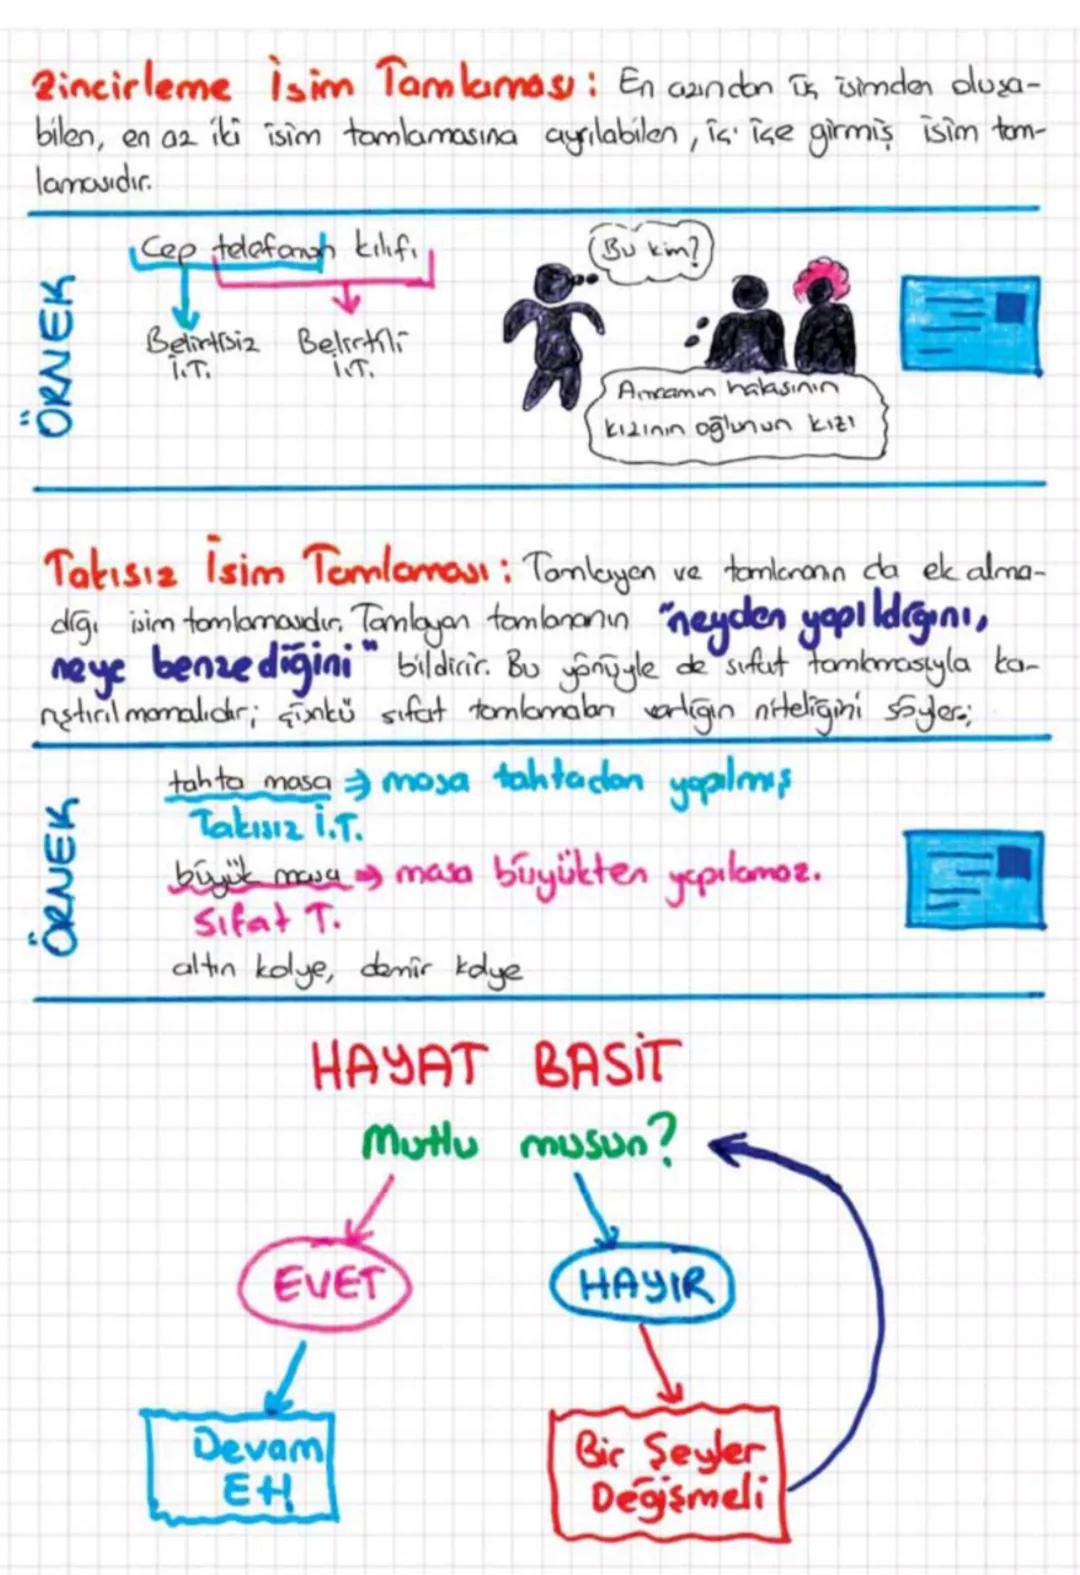 Zincirleme İsim Tamlaması: En azından üç isimden oluşa-
bilen, en az iki isim tamlamasına ayrılabilen, iç içe girmiş isim tam-
lamasıdır.
ÖRNEK
Cep telefonun kılıfı
Belirtisiz İ.T.
Belirtili İ.T.
Bu kim?
Amcamın halasının
kızının oğlunun kızı
Takısız İsim Tamlaması: Tamlayan ve tamlananın da ek alma-
dığı isim tamlamasıdır. Tamlayan tamlananın "neyden yapıldığını,
neye benzediğini" bildirir. Bu yönüyle de sıfat tamlamasıyla ka-
rıştırılmamalıdır; çünkü sıfat tamlamaları varlığın niteliğini söyler;
ÖRNEK
tahta masa ⇒ masa tahtadan yapılmış
Takısız İ.T.
büyük masa ⇒ masa büyükten yapılamaz.
Sıfat T.
altın kolye, demir kolye
HAYAT BASİT
Mutlu musun?
EVET
HAYIR
Devam
Et!
Bir Şeyler
Değişmeli